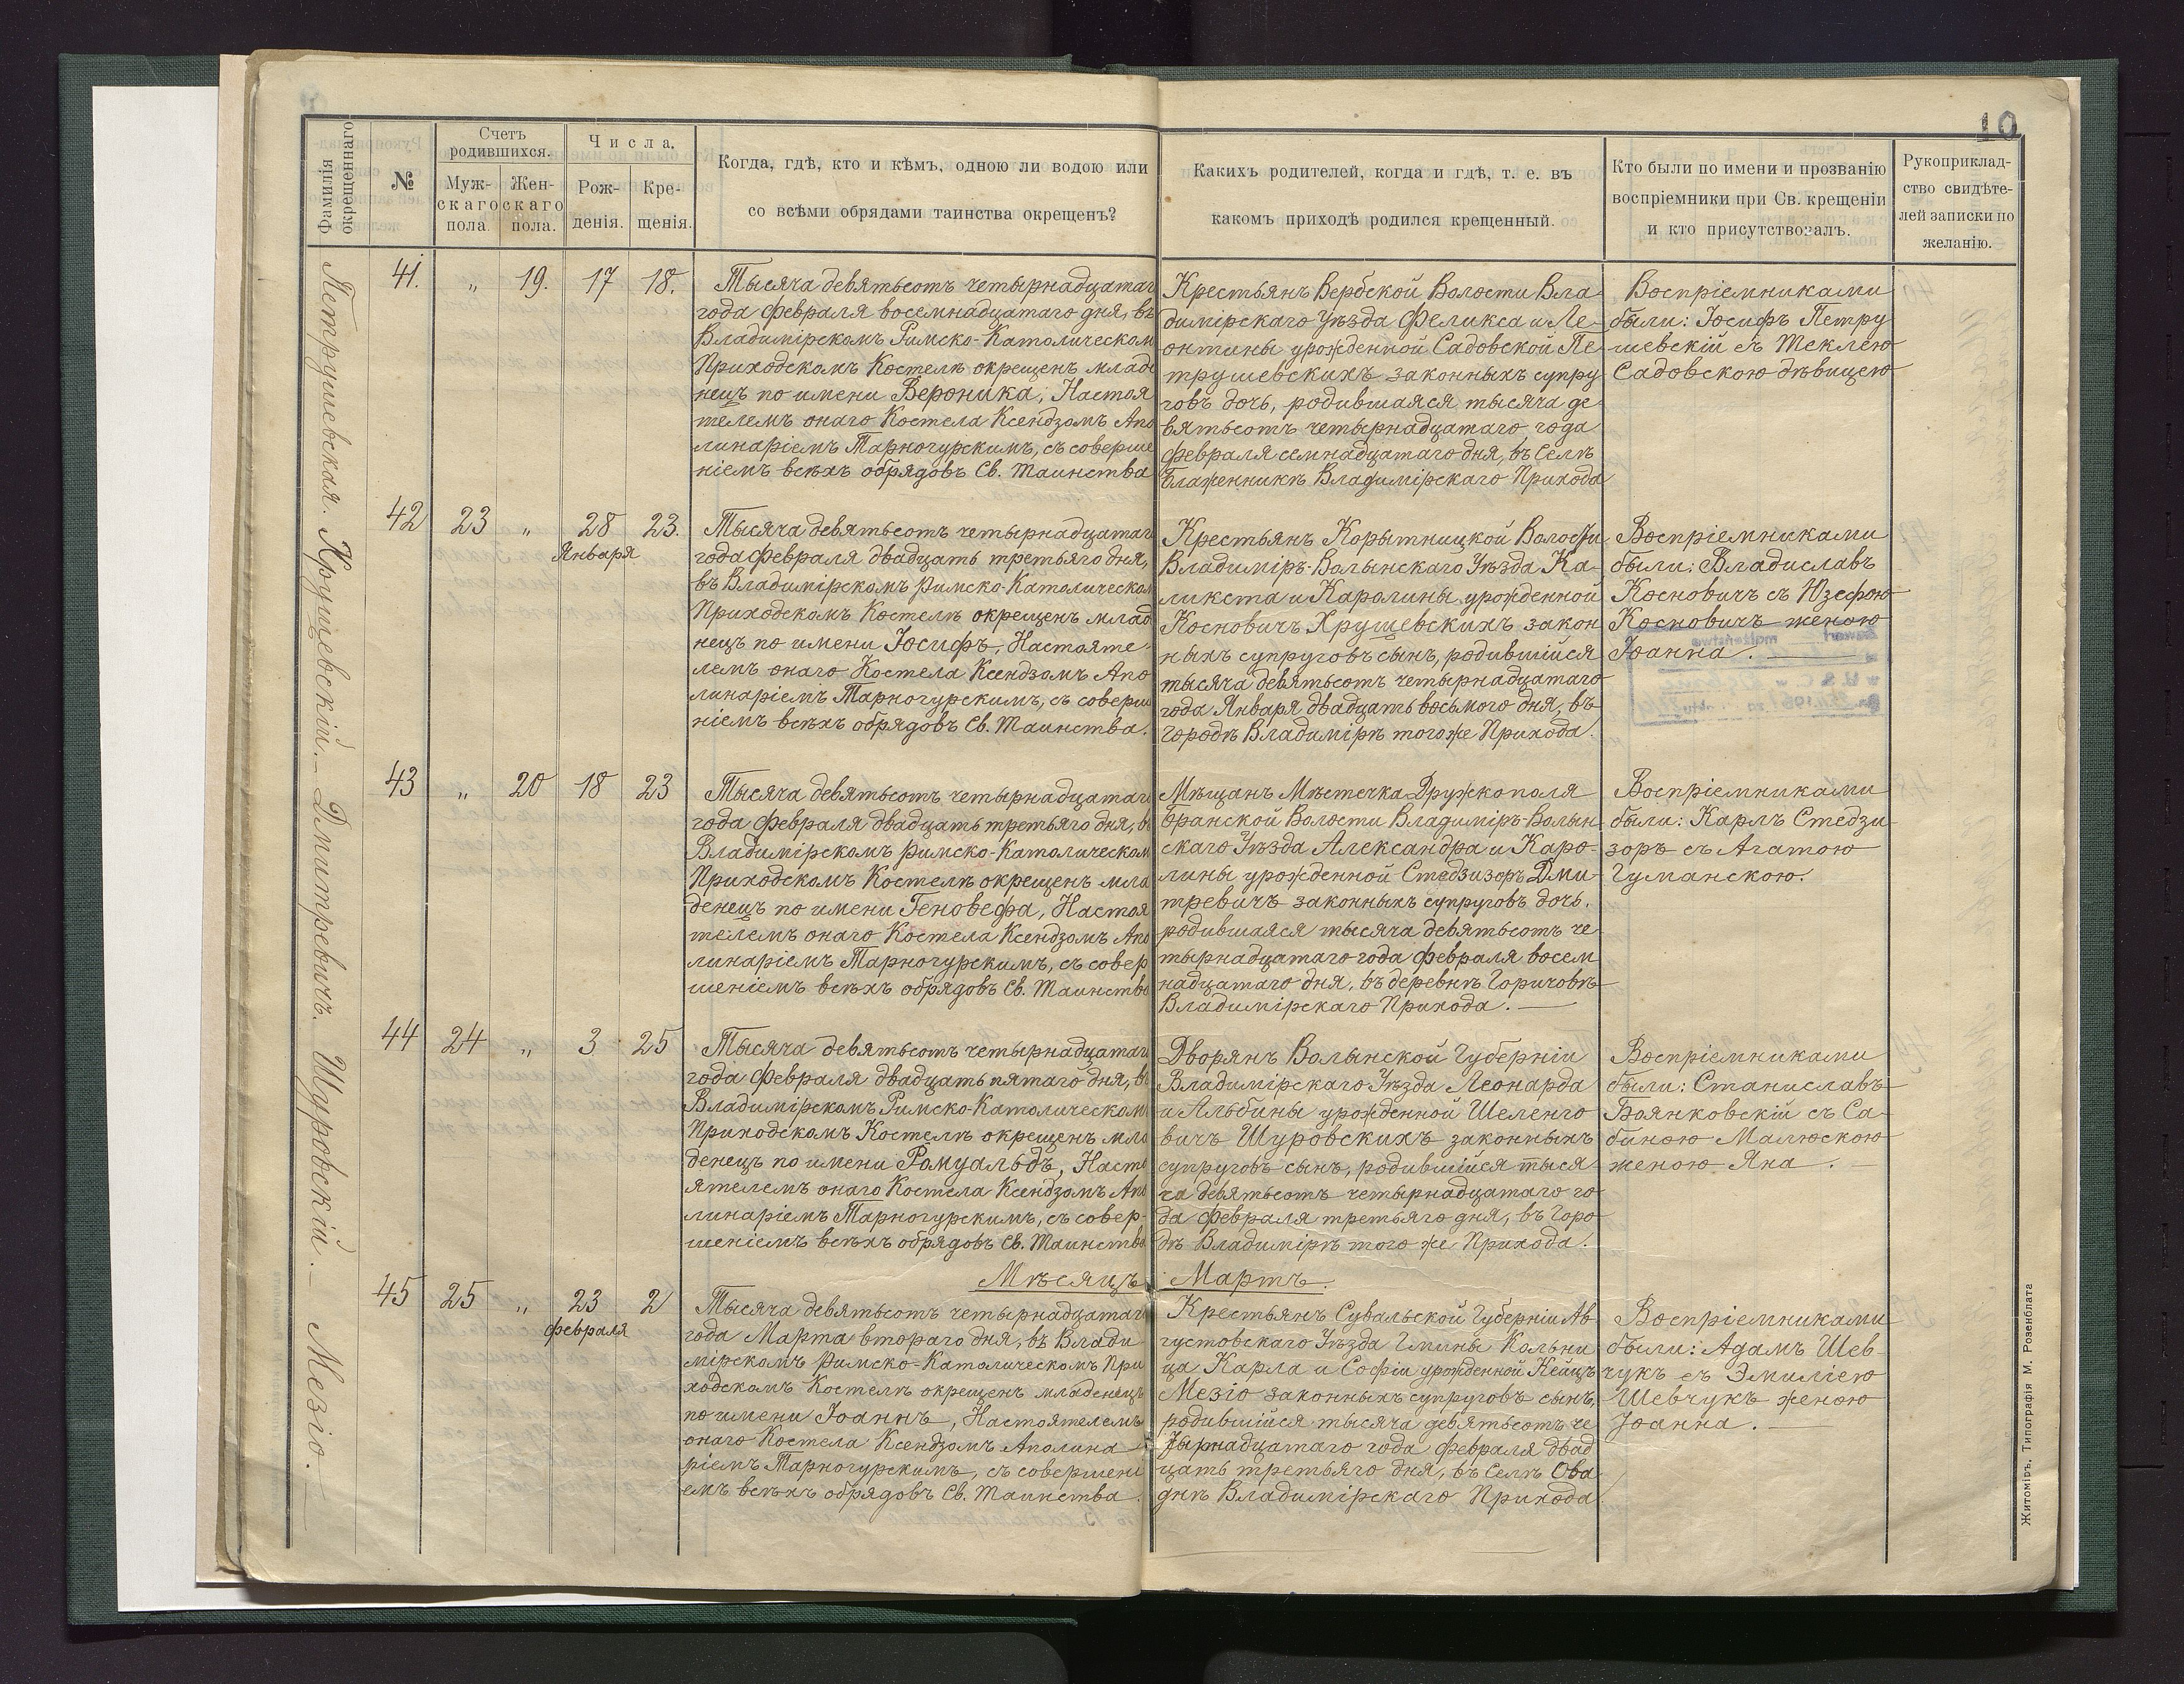 10
Фамилія
окрещеннаго
№
Счетъ
родившихся.
Муж-
скаго
пола.
Жен-
скаго
пола.
Числа.
Рож-
денія.
Кре-
щенія.
Когда, гдѣ, кто и кѣмъ, одною ли водою или
со всѣми обрядами таинства окрещенъ?
Какихъ родителей, когда и гдѣ, т. е. въ
какомъ приходѣ родился крещенный.
Кто были по имени и прозванію
воспріемники при Св. крещеніи
и кто присутствовалъ.
Рукоприклад-
ство свидѣте-
лей записки по
желанію.
Петрушевская. Хрушевскій. Дмитревичъ. Щуровскій. Мезіо.
41. " 19. 17 18.
Тысяча девятьсотъ четырнадцатаг
года февраля восемнадцатаго дня, въ
Владимірскомъ Римско-Католическом
Приходскомъ Костелѣ окрещенъ младе
нецъ по имени Вероника, Настоя
телемъ онаго Костела Ксендзомъ Апо
линаріемъ Тарногурскимъ, съ соверше
ніемъ всѣхъ обрядовъ Св. Таинства
Крестьянъ Вербской Волости Вла-
димірскаго Уѣзда Феликса и Ле-
онтины урожденной Садовской Пе-
трушевскихъ законныхъ супру
говъ дочь, родившаяся тысяча де
вятьсотъ четырнадцатаго года
февраля семнадцатаго дня, въ Селѣ
Блаженникѣ Владимірскаго Прихода
Воспріемниками
были: Іосифъ Петру
шевскій съ Теклею
Садовскою дѣвицею
42 23 " 28 23.
Января
Тысяча девятьсотъ четырнадцатаг
года февраля двадцать третьяго дня,
въ Владимірскомъ Римско-Католическом
Приходскомъ Костелѣ окрещенъ млад
нецъ по имени Іосифъ, Настояте-
лемъ онаго Костела Ксендзомъ Апо
линаріемъ Тарногурскимъ, съ соверш
ніемъ всѣхъ обрядовъ Св. Таинства.
Крестьянъ Корытницкой Волости
Владиміръ-Волынскаго Уѣзда Ка-
ликста и Каролины урожденной
Косновичъ Хрушевскихъ закон
ныхъ супруговъ сынъ, родившійся
тысяча девятьсотъ четырнадцатаго
года Января двадцать восьмого дня, въ
Городѣ Владимірѣ того же Прихода.
Воспріемниками
были: Владиславъ
Косновичъ съ Юзефою
Косновичъ женою
Іоанна.
43 " 20 18 23
Тысяча девятьсотъ четырнадцатаг
года февраля двадцать третьяго дня, в
Владимірскомъ Римско-Католическом
Приходскомъ Костелѣ окрещенъ мла
денецъ по имени Геновефа, Настоя
телемъ онаго Костела Ксендзомъ Апо
линаріемъ Тарногурскимъ, съ совер
шеніемъ всѣхъ обрядовъ Св. Таинства
Мѣщанъ Мѣстечка Дружкополя
Бранской Волости Владиміръ-Волын
скаго Уѣзда Александра и Каро-
лины урожденной Стедзизоръ Дми-
тревичъ законныхъ супруговъ дочь.
родившаяся тысяча девятьсотъ че
тырнадцатаго года февраля восем
надцатаго дня, въ деревнѣ Горичовѣ
Владимірскаго Прихода.
Воспріемниками
были: Карлъ Стедзи
зоръ съ Агатою
Гуманскою.
44 24 " 3 25
Тысяча девятьсотъ четырнадцатаг
года февраля двадцать пятаго дня, в
Владимірскомъ Римско-Католическом
Приходскомъ Костелѣ окрещенъ мла
денецъ по имени Ромуальдъ, Насто
ятелемъ онаго Костела Ксендзомъ Апо
линаріемъ Тарногурскимъ, съ совер-
шеніемъ всѣхъ обрядовъ Св. Таинства
Дворянъ Волынской Губерніи
Владимірскаго Уѣзда Леонарда
и Альбины урожденной Шеленго
вичъ Щуровскихъ законныхъ
супруговъ сынъ, родившійся тыся
ча девятьсотъ четырнадцатаго го
да февраля третьяго дня, въ Горо
дѣ Владимірѣ того же Прихода.
Воспріемниками
были: Станиславъ
Боянковскій съ Са-
биною Малюскою
женою Яна.
Мѣсяцъ Мартъ.
45 25 " 23 2
февраля
Тысяча девятьсотъ четырнадцатаг
года Марта второго дня, въ Влади
мірскомъ Римско-Католическомъ При
ходскомъ Костелѣ окрещенъ младенецъ
по имени Іоаннъ, Настоятелемъ
онаго Костела Ксендзомъ Аполина
ріемъ Тарногурскимъ, съ совершені
емъ всѣхъ обрядовъ Св. Таинства.
Крестьянъ Сувальской Губерніи Ав
густовскаго Уѣзда Гмины Кольни
ца Карла и Софіи урожденной Кейцъ
Мезіо законныхъ супруговъ сынъ,
родившійся тысяча девятьсотъ че
тырнадцатаго года февраля двад
цать третьяго дня, въ Селѣ Ова
днѣ Владимірскаго Прихода.
Воспріемниками
были: Адамъ Шев-
чукъ съ Эмиліею
Шевчукъ женою
Іоанна.
Житоміръ, Типографія М. Розенблата